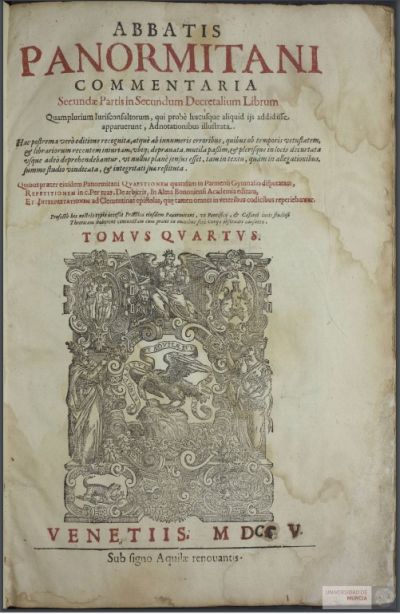 ABBATIS
PANORMITANI
COMMENTARIA
Secundæ Partis in Secundum Decretalium Librum
Quamplurium Iurisconsultorum, qui probè hucusque aliquid ijs addidisse
apparuerunt, Adnotationibus illustrata.
Hac postrema verò editione recognita, atque ab innumeris erroribus, quibus ob temporis vetustatem,
& librariorum recentem incuriam, vbique deprauata, mutila passim, & plerisque in locis decurtata
vsque adeò deprehendebantur, vt nullus planè sensus esset, tam in textu, quàm in allegationibus,
summo studio vindicata, & integritati suæ restituta.
Quibus præter eiusdem Panormitani QVAESTIONEM quandam in Parmensi Gymnasio disputatam,
REPETITIONEM in c. Per tuas, De arbitris, In Alma Bononiensi Academia editam,
ET INTERPRETATIONEM ad Clementinas epistolas, quæ tamen omnes in veteribus codicibus reperiebantur.
TOMVS QVARTVS.
VENETIIS, M DCC V.
Sub signo Aquilæ renouantis.
UNIVERSIDAD DE
MURCIA